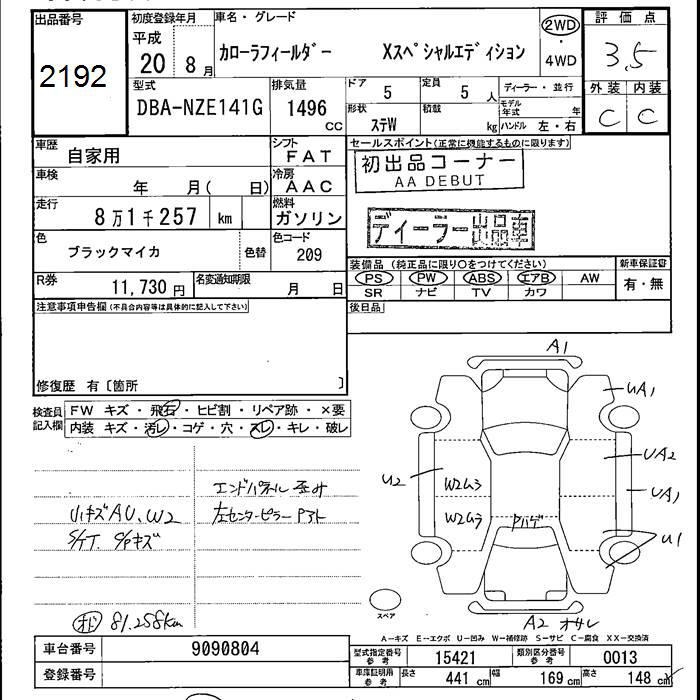 出品番号
2192
初度登録年月
平成
20 8月
車名・グレード
カローラフィールダー Xスペシャルエディション
2WD
・
4WD
評価点
3.5
外装 内装
C C
型式
DBA-NZE141G
排気量
1496
cc
ドア
5
定員
5人
ディーラー・並行
形状
ステW
積載
kg
モデル年式 年
ハンドル 左・右
車歴
自家用
シフト
FAT
車検
年 月( 日)
冷房
AAC
走行
8万1千257 km
燃料
ガソリン
色
ブラックマイカ
色替
色コード
209
R券
11,730円
名変通知期限
月 日
セールスポイント(正常に機能するものに限ります)
初出品コーナー
AA DEBUT
ディーラー出品車
装備品(純正品に限り○をつけてください)
PS PW ABS エアB AW
SR ナビ TV カワ
新車保証書
有・無
後日品
注意事項申告欄(不具合内容等は具体的に記入して下さい)
修復歴 有〔箇所 〕
検査員
記入欄
FW キズ・飛石・ヒビ割・リペア跡・×要
内装 キズ・汚レ・コゲ・穴・スレ・キレ・破レ
エンドパネル歪み
リハキズAU、W2
左センターピラーPアト
S/T. C/Pキズ
81.258km
A1
UA1
UA2
U2
W2ムラ
UA1
W2ムラ
Pハゲ
U1
スペア
A2 オサレ
A―キズ E―エクボ U―凹み W―補修跡 S―サビ C―腐食 XX―交換済
車台番号
9090804
登録番号
型式指定番号
参考
15421
類別区分番号
参考
0013
車庫証明用
参考
長さ
441 cm
幅
169 cm
高さ
148 cm